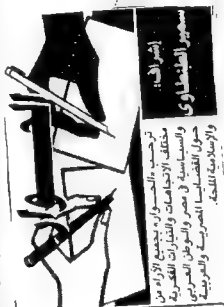 إشراف:
سمير الطنطاوى
ترحب «الحوار» بجميع الآراء من
مختلف الاتجاهات والتيارات الفكرية
والسياسية فى مصر والوطن العربى
حول القضايا المصرية والعربية
والإسلامية الملحة.